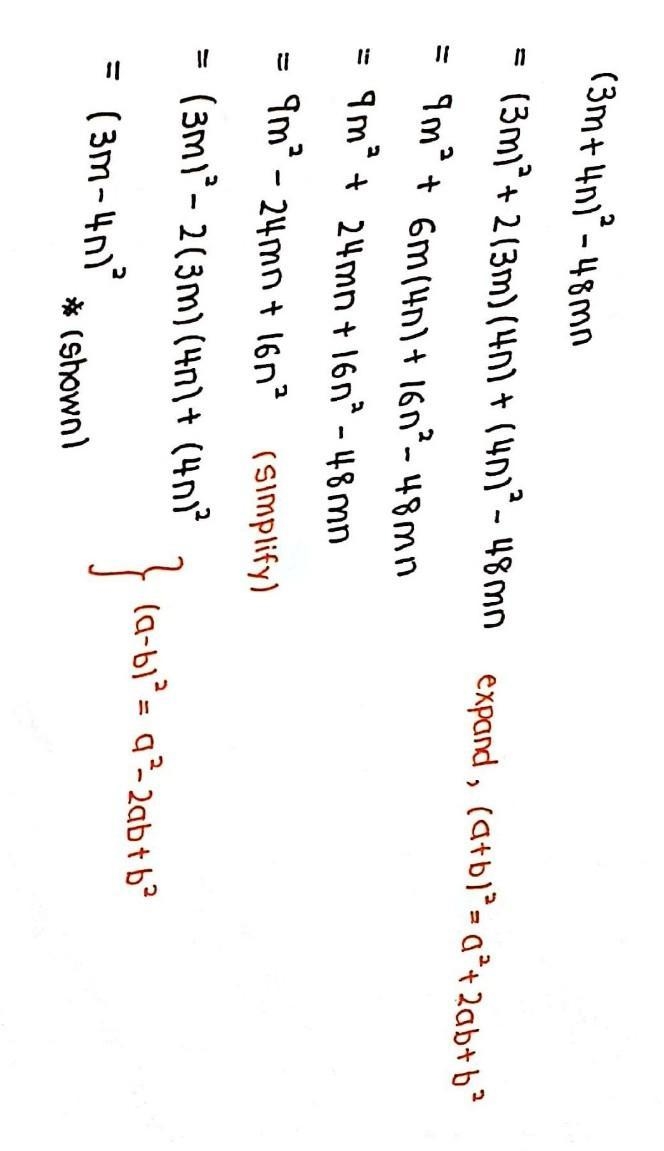 (3m+4n)² - 48mn
= (3m)² + 2(3m)(4n) + (4n)² - 48mn expand, (a+b)² = a² + 2ab + b²
= 9m² + 6m(4n) + 16n² - 48mn
= 9m² + 24mn + 16n² - 48mn
= 9m² - 24mn + 16n² (simplify)
= (3m)² - 2(3m)(4n) + (4n)²
= (3m-4n)² } (a-b)² = a² - 2ab + b²
* (shown)